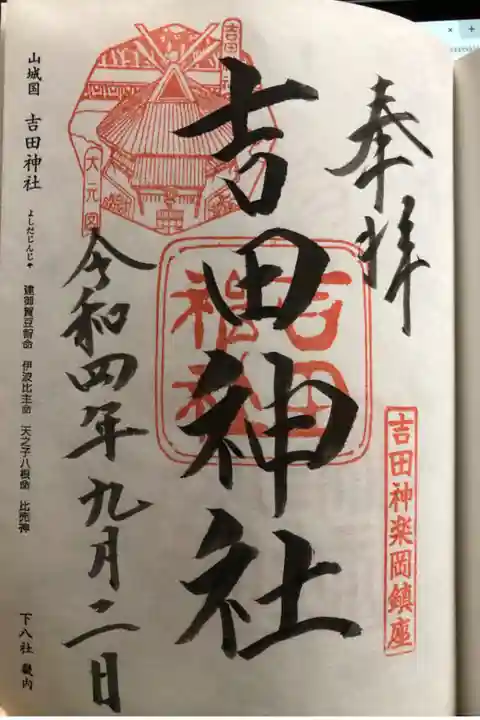 奉拝
吉田神社
吉田神社
吉田神楽岡鎮座
吉田神社
大元宮
令和四年九月二日
山城国 吉田神社 よしだじんじゃ 建御賀豆智命 伊波比主命 天之子八根命 比売神 下八社 畿内